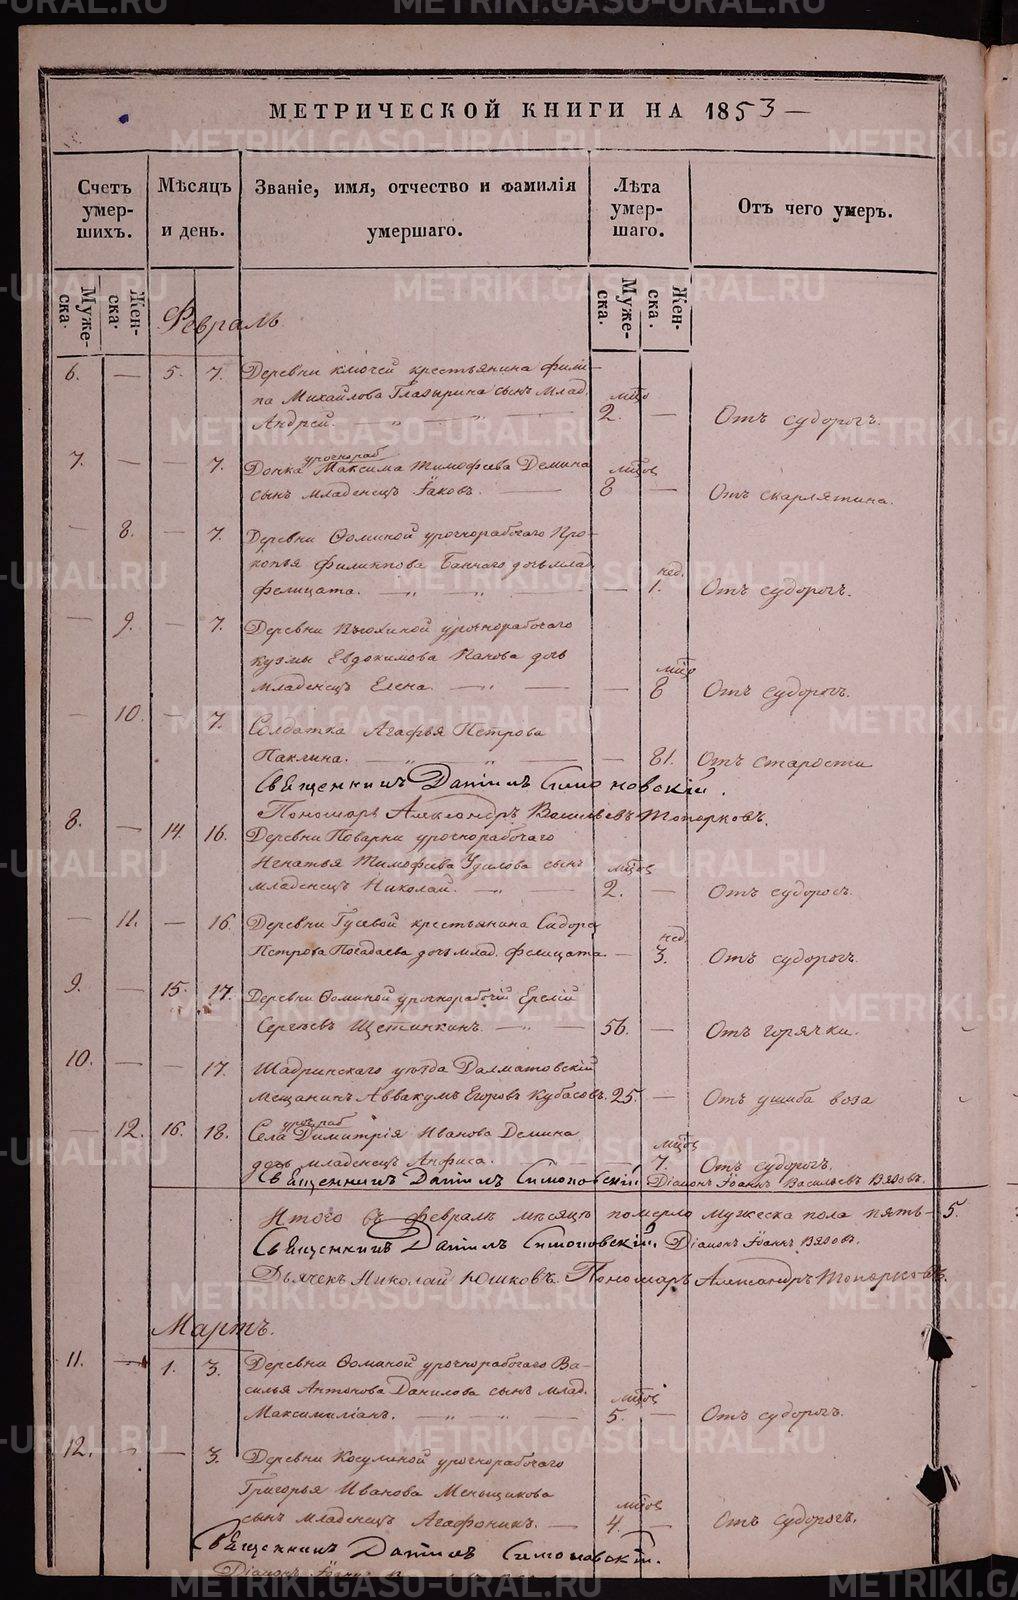 МЕТРИЧЕСКОЙ КНИГИ НА 1853 —
Счетъ умер-шихъ.
Мѣсяцъ и день.
Званіе, имя, отчество и фамилія умершаго.
Лѣта умер-шаго.
Отъ чего умеръ.
Муже-ска.
Жен-ска.
Муже-ска.
Жен-ска.
Февраль
6. — 5. 7. Деревни Ключей крестьянина Фили-
па Михайлова Глазырина сынъ млад.
Андрей. — „ — „ — мцо 2. — Отъ судорогъ.
7. — — 7. Донка урочнораб Максима Тимофѣева Демина
сынъ младенецъ Іаковъ. — мцов 8 — Отъ скарлятина.
— 8. — 7. Деревни Ѳоминой урочнорабочаго Про-
копья Филиппова дочь млад.
Фелицата. — „ — „ — — нед. 1. Отъ судорогъ.
— 9. — 7. Деревни Вьюхиной урочнорабочаго
Кузмы Евдокимова Панова дочь
младенецъ Елена. — „ — — мцо 8 Отъ судорогъ.
— 10. — 7. Солдатка Агафья Петрова
Паклина. — „ — — 81. Отъ старости
Священникъ Даніилъ Симоновскій.
Пономарь Александръ Васильевъ Топорковъ.
8. — 14. 16. Деревни Поварни урочнорабочаго
Игнатья Тимофѣева Удилова сынъ
младенецъ Николай. — „ — мцов 2. — Отъ судорогъ.
— 11. — 16. Деревни Гусевой крестьянина Сидора
Петрова Посадаева дочь млад. Фелицата — нед. 3. Отъ судорогъ.
9. — 15. 17. Деревни Ѳоминой урочнорабочій
Сергѣевъ Щетинкинъ. — „ — 56. — Отъ горячки.
10. — — 17. Шадринскаго уѣзда Далматовскій
мещанинъ Аввакумъ Егоровъ Кубасовъ. 25. — Отъ ушиба воза
— 12. 16. 18. Села урочраб Димитрія Иванова Демина
дочь младенецъ Анфиса. — — мцов 7. Отъ судорогъ.
Священникъ Даніилъ Симоновскій. Діаконъ Іоаннъ Васильевъ Вздовъ.
Итого въ Февралѣ мѣсяцѣ померло мужеска пола пять — 5.
Священникъ Даніилъ Симоновскій. Діаконъ Іоаннъ Вздовъ.
Дьячекъ Николай Юшковъ. Пономарь Александръ Топорковъ.
Мартъ.
11. — 1. 3. Деревни Ѳоминой урочнорабочаго Ва-
силья Антонова Данилова сынъ млад.
Максимиліанъ. — „ — „ — мцов 5. — Отъ судорогъ.
12. — — 3. Деревни Косулиной урочнорабочаго
Григорья Иванова Меньщикова
сынъ младенецъ Агафоникъ. — мцов 4. — Отъ судорогъ.
Священникъ Даніилъ Симоновскій.
Діаконъ Іоаннъ
METRIKI.GASO-URAL.RU